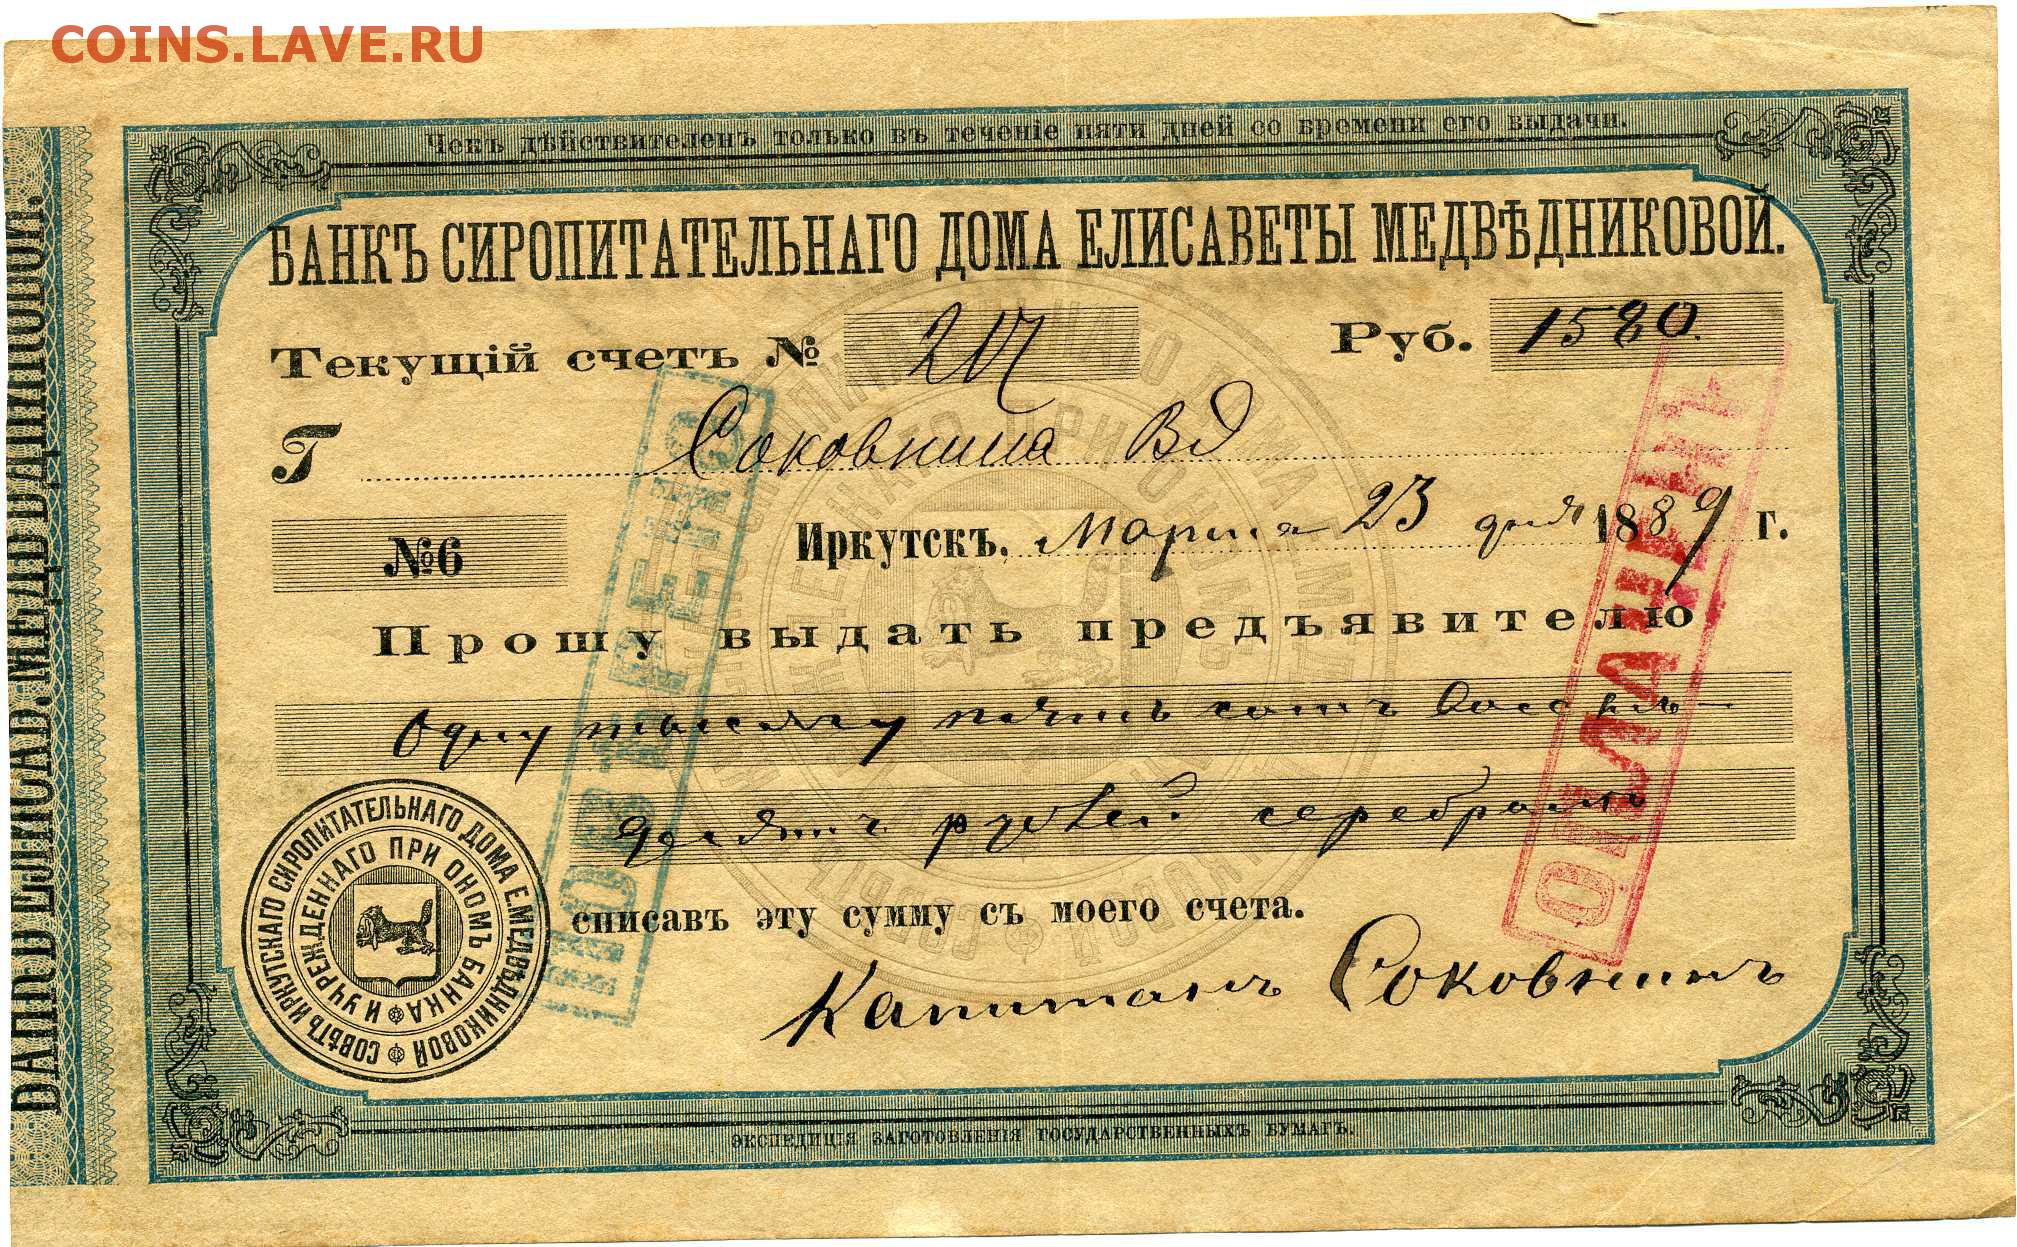 COINS.LAVE.RU
Чекъ дѣйствителенъ только въ теченіе пяти дней со времени его выдачи.
БАНКЪ СИРОПИТАТЕЛЬНАГО ДОМА ЕЛИСАВЕТЫ МЕДВѢДНИКОВОЙ.
Текущій счетъ № Руб. 1580.
Г Соковнина ВД
№6 Иркутскъ, Марта 23 дня 1889 г.
Прошу выдать предъявителю
Одну тысячу пять сотъ восемь-
десятъ рублей серебромъ
списавъ эту сумму съ моего счета.
Капитанъ Соковнинъ
СОВѢТЪ ИРКУТСКАГО СИРОПИТАТЕЛЬНАГО ДОМА Е.МЕДВѢДНИКОВОЙ
И УЧРЕЖДЕННАГО ПРИ ОНОМЪ БАНКА
ПОВѢРЕНО
ОПЛАЧЕНЪ
ЭКСПЕДИЦІЯ ЗАГОТОВЛЕНІЯ ГОСУДАРСТВЕННЫХЪ БУМАГЪ.